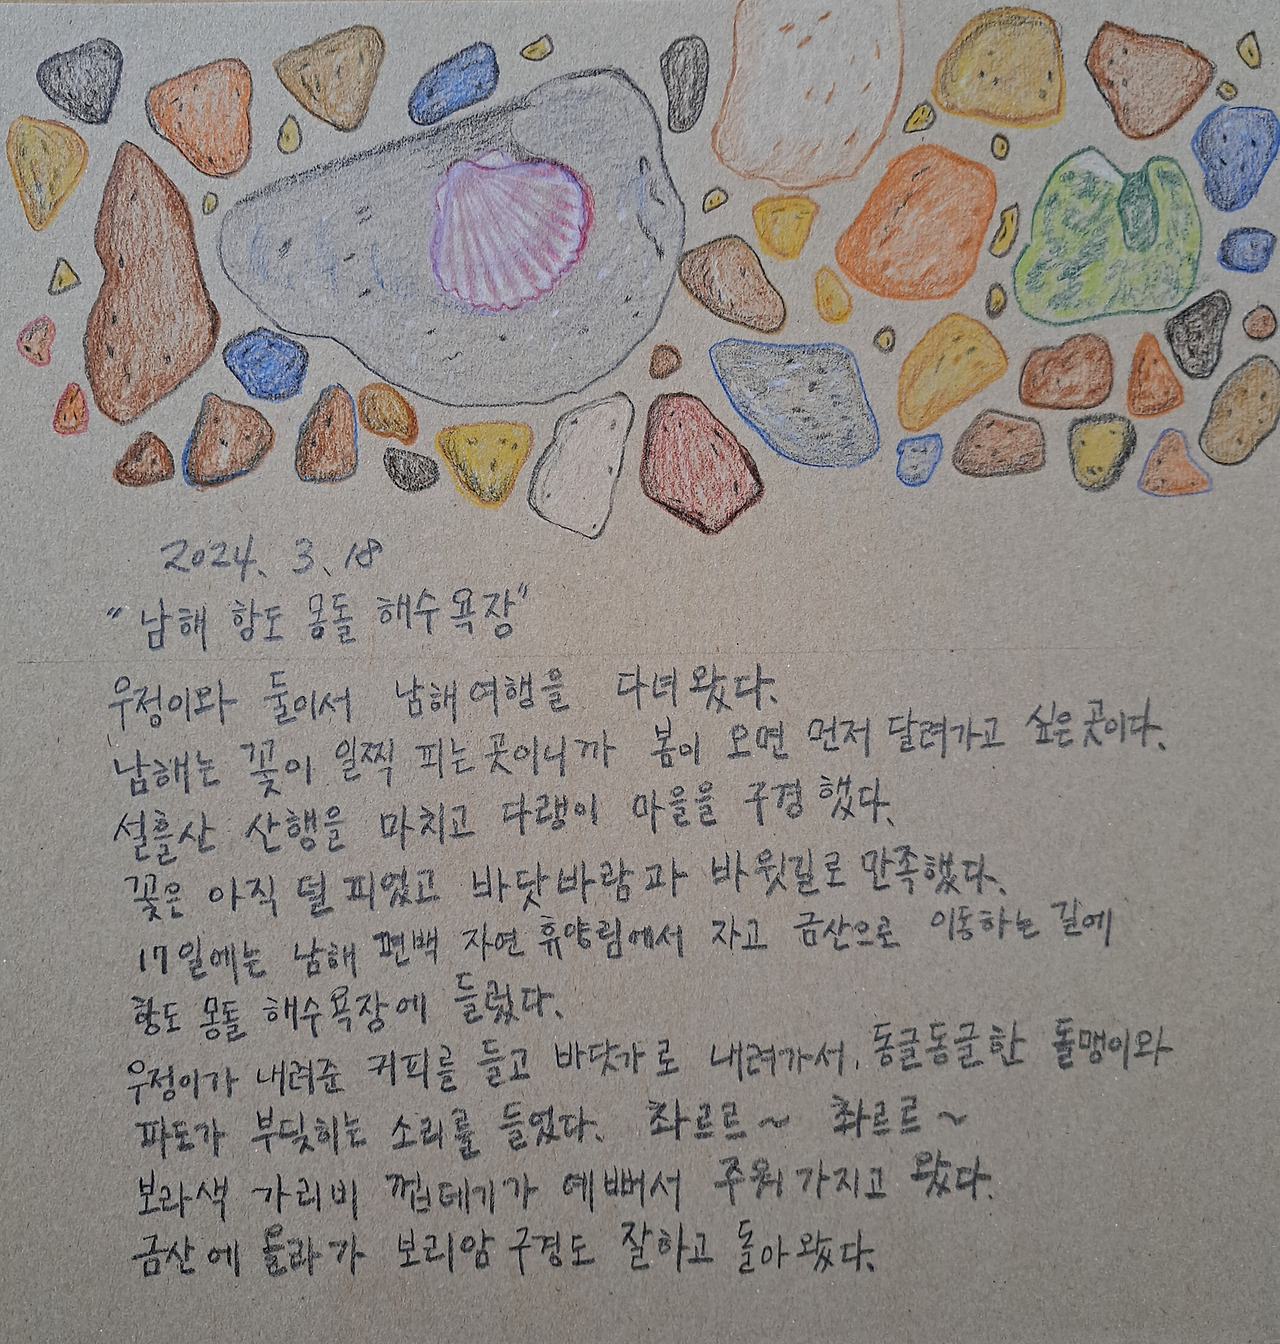 2024. 3. 18
"남해 항도 몽돌 해수욕장"
우정이와 둘이서 남해여행을 다녀왔다.
남해는 꽃이 일찍 피는 곳이니까 봄이 오면 먼저 달려가고 싶은곳이다.
설흘산 산행을 마치고 다랭이 마을을 구경했다.
꽃은 아직 덜 피었고 바닷바람과 바윗길로 만족했다.
17일에는 남해 편백 자연 휴양림에서 자고 금산으로 이동하는 길에
항도 몽돌 해수욕장에 들렀다.
우정이가 내려준 커피를 들고 바닷가로 내려가서, 동글동글한 돌맹이와
파도가 부딪히는 소리를 들었다. 촤르르~ 촤르르~
보라색 가리비 껍데기가 예뻐서 주워 가지고 왔다.
금산에 올라가 보리암 구경도 잘하고 돌아왔다.